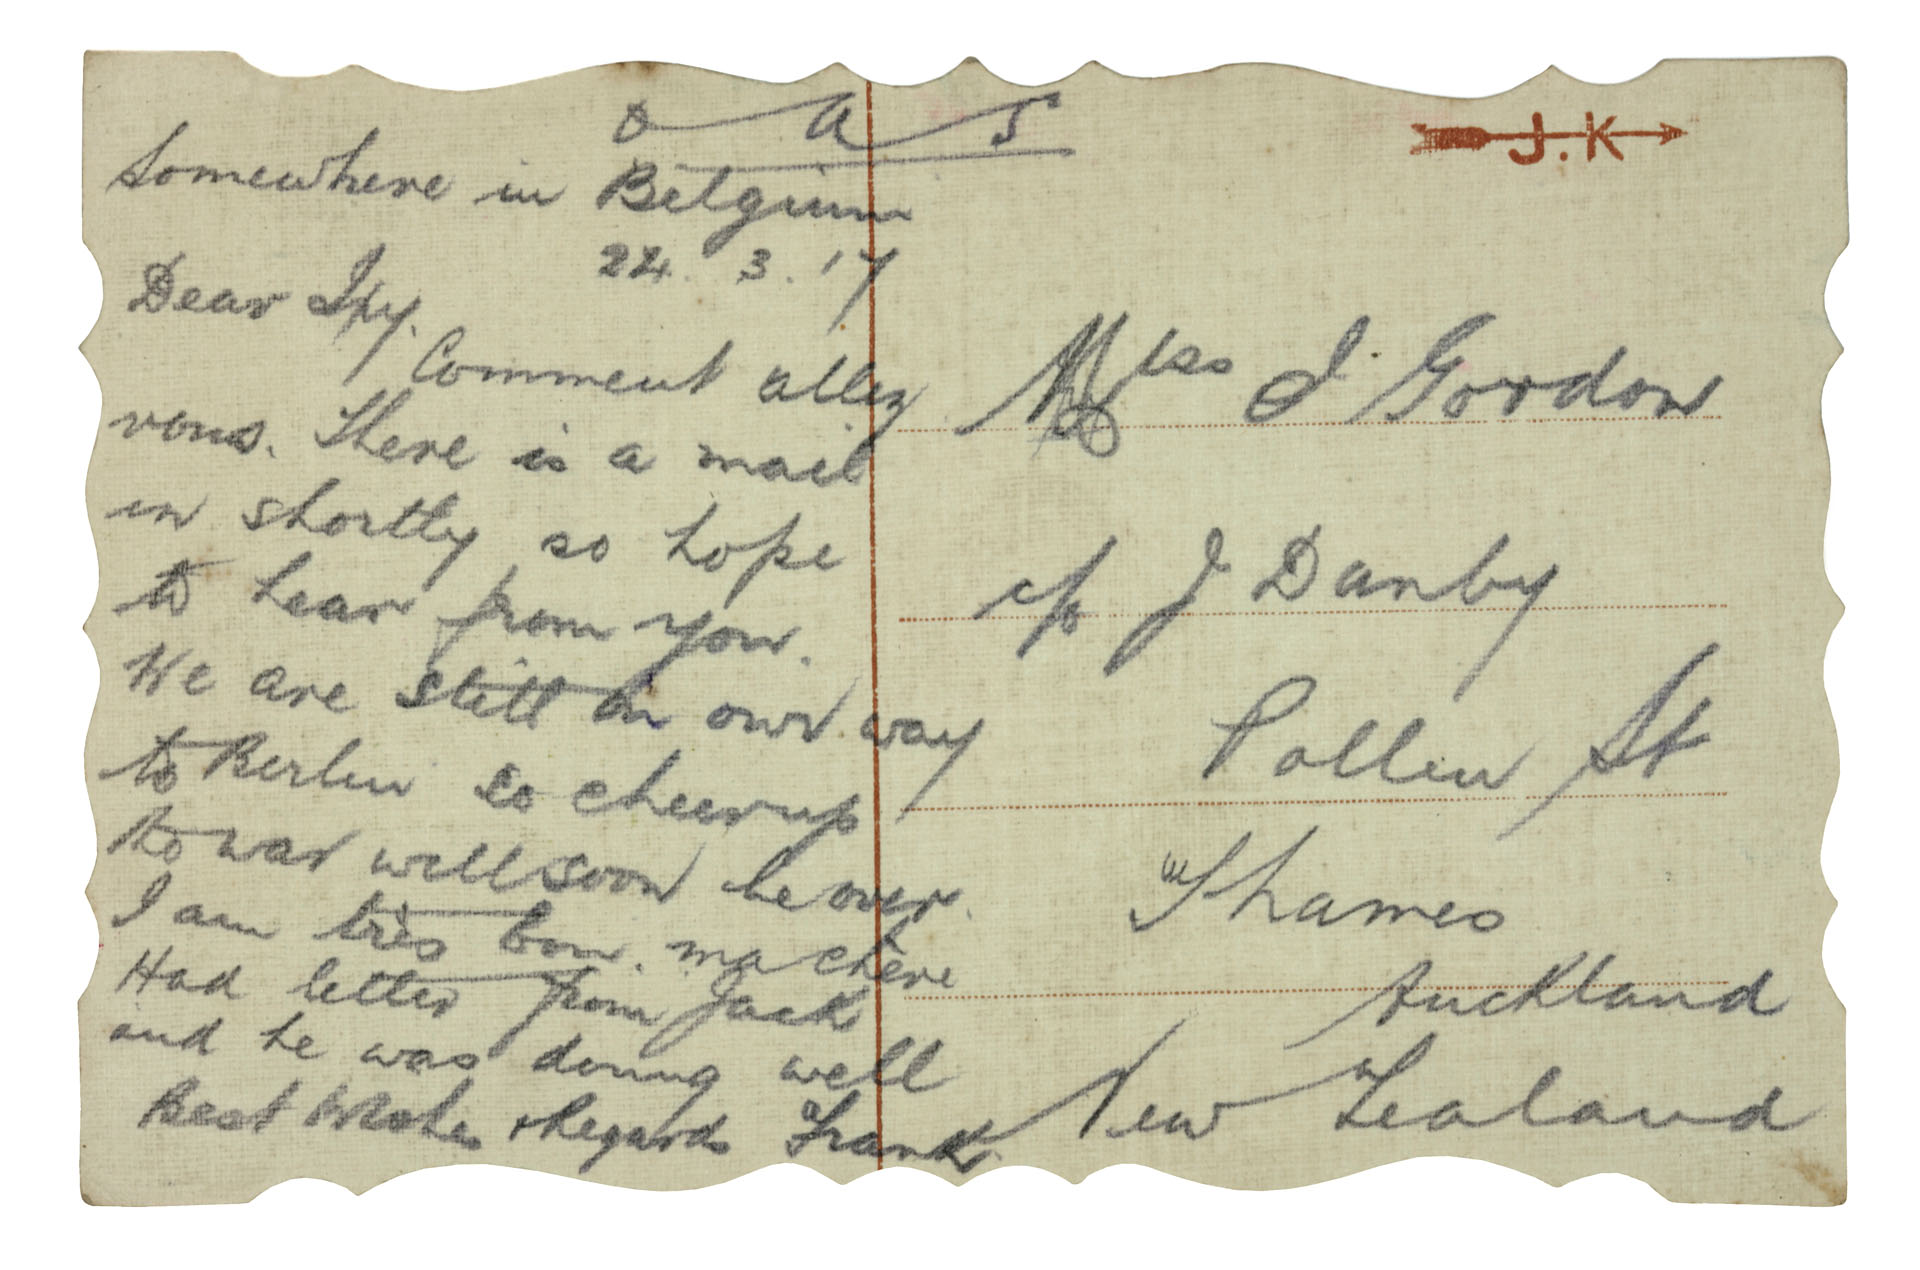 O A S
Somewhere in Belgium
24. 3. 17
Dear Ipy.
Comment allez
vous. There is a mail
in shortly so hope
to hear from you.
We are still on our way
to Berlin so cheer up
to war will soon be over.
I am très bon. ma chère
Had letter from Jack
and he was doing well
Best Wishes & Regards Frank
J. K
Miss I Gordon
c/o J Danby
Pollen St
Thames
Auckland
New Zealand